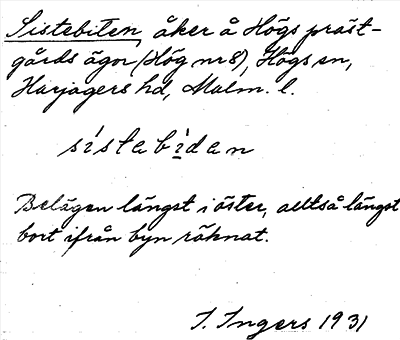 Sistebiten, åker å Högs präst-
gårds ägn (Hög nr 8), Högs sn,
Harjagers hd, Malm. l.
sístabìdan
Belägen längst i öster, alltså längst
bort ifrån byn räknat.
I. Ingers 1931